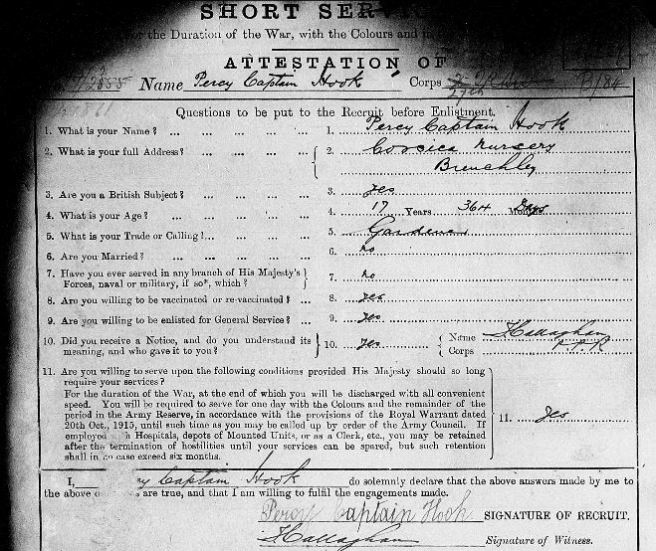 SHORT SER
for the Duration of the War, with the Colours and in
ATTESTATION OF
Name Percy Captain Hook Corps B/84
Questions to be put to the Recruit before Enlistment.
1. What is your Name? ... ... ... ... 1. Percy Captain Hook
2. What is your full Address? ... ... ... 2. Nursery
Brenchley
3. Are you a British Subject? ... ... ... 3. yes
4. What is your Age? ... ... ... ... 4. 17 Years 364 Days
5. What is your Trade or Calling? ... ... ... 5. Gardener
6. Are you Married? ... ... ... ... 6. no
7. Have you ever served in any branch of His Majesty's
Forces, naval or military, if so*, which? 7. no
8. Are you willing to be vaccinated or re-vaccinated? ... 8. yes
9. Are you willing to be enlisted for General Service? ... 9. yes
10. Did you receive a Notice, and do you understand its
meaning, and who gave it to you? ... 10. yes Name Hallaghan
Corps
11. Are you willing to serve upon the following conditions provided His Majesty should so long
require your services?
For the duration of the War, at the end of which you will be discharged with all convenient
speed. You will be required to serve for one day with the Colours and the remainder of the
period in the Army Reserve, in accordance with the provisions of the Royal Warrant dated
20th Oct., 1915, until such time as you may be called up by order of the Army Council. If
employed Hospitals, depots of Mounted Units, or as a Clerk, etc., you may be retained
after the termination of hostilities until your services can be spared, but such retention
shall in no case exceed six months.
11. yes
I, Captain Hook do solemnly declare that the above answers made by me to
the above are true, and that I am willing to fulfil the engagements made.
Percy Captain Hook SIGNATURE OF RECRUIT.
Hallaghan Signature of Witness.